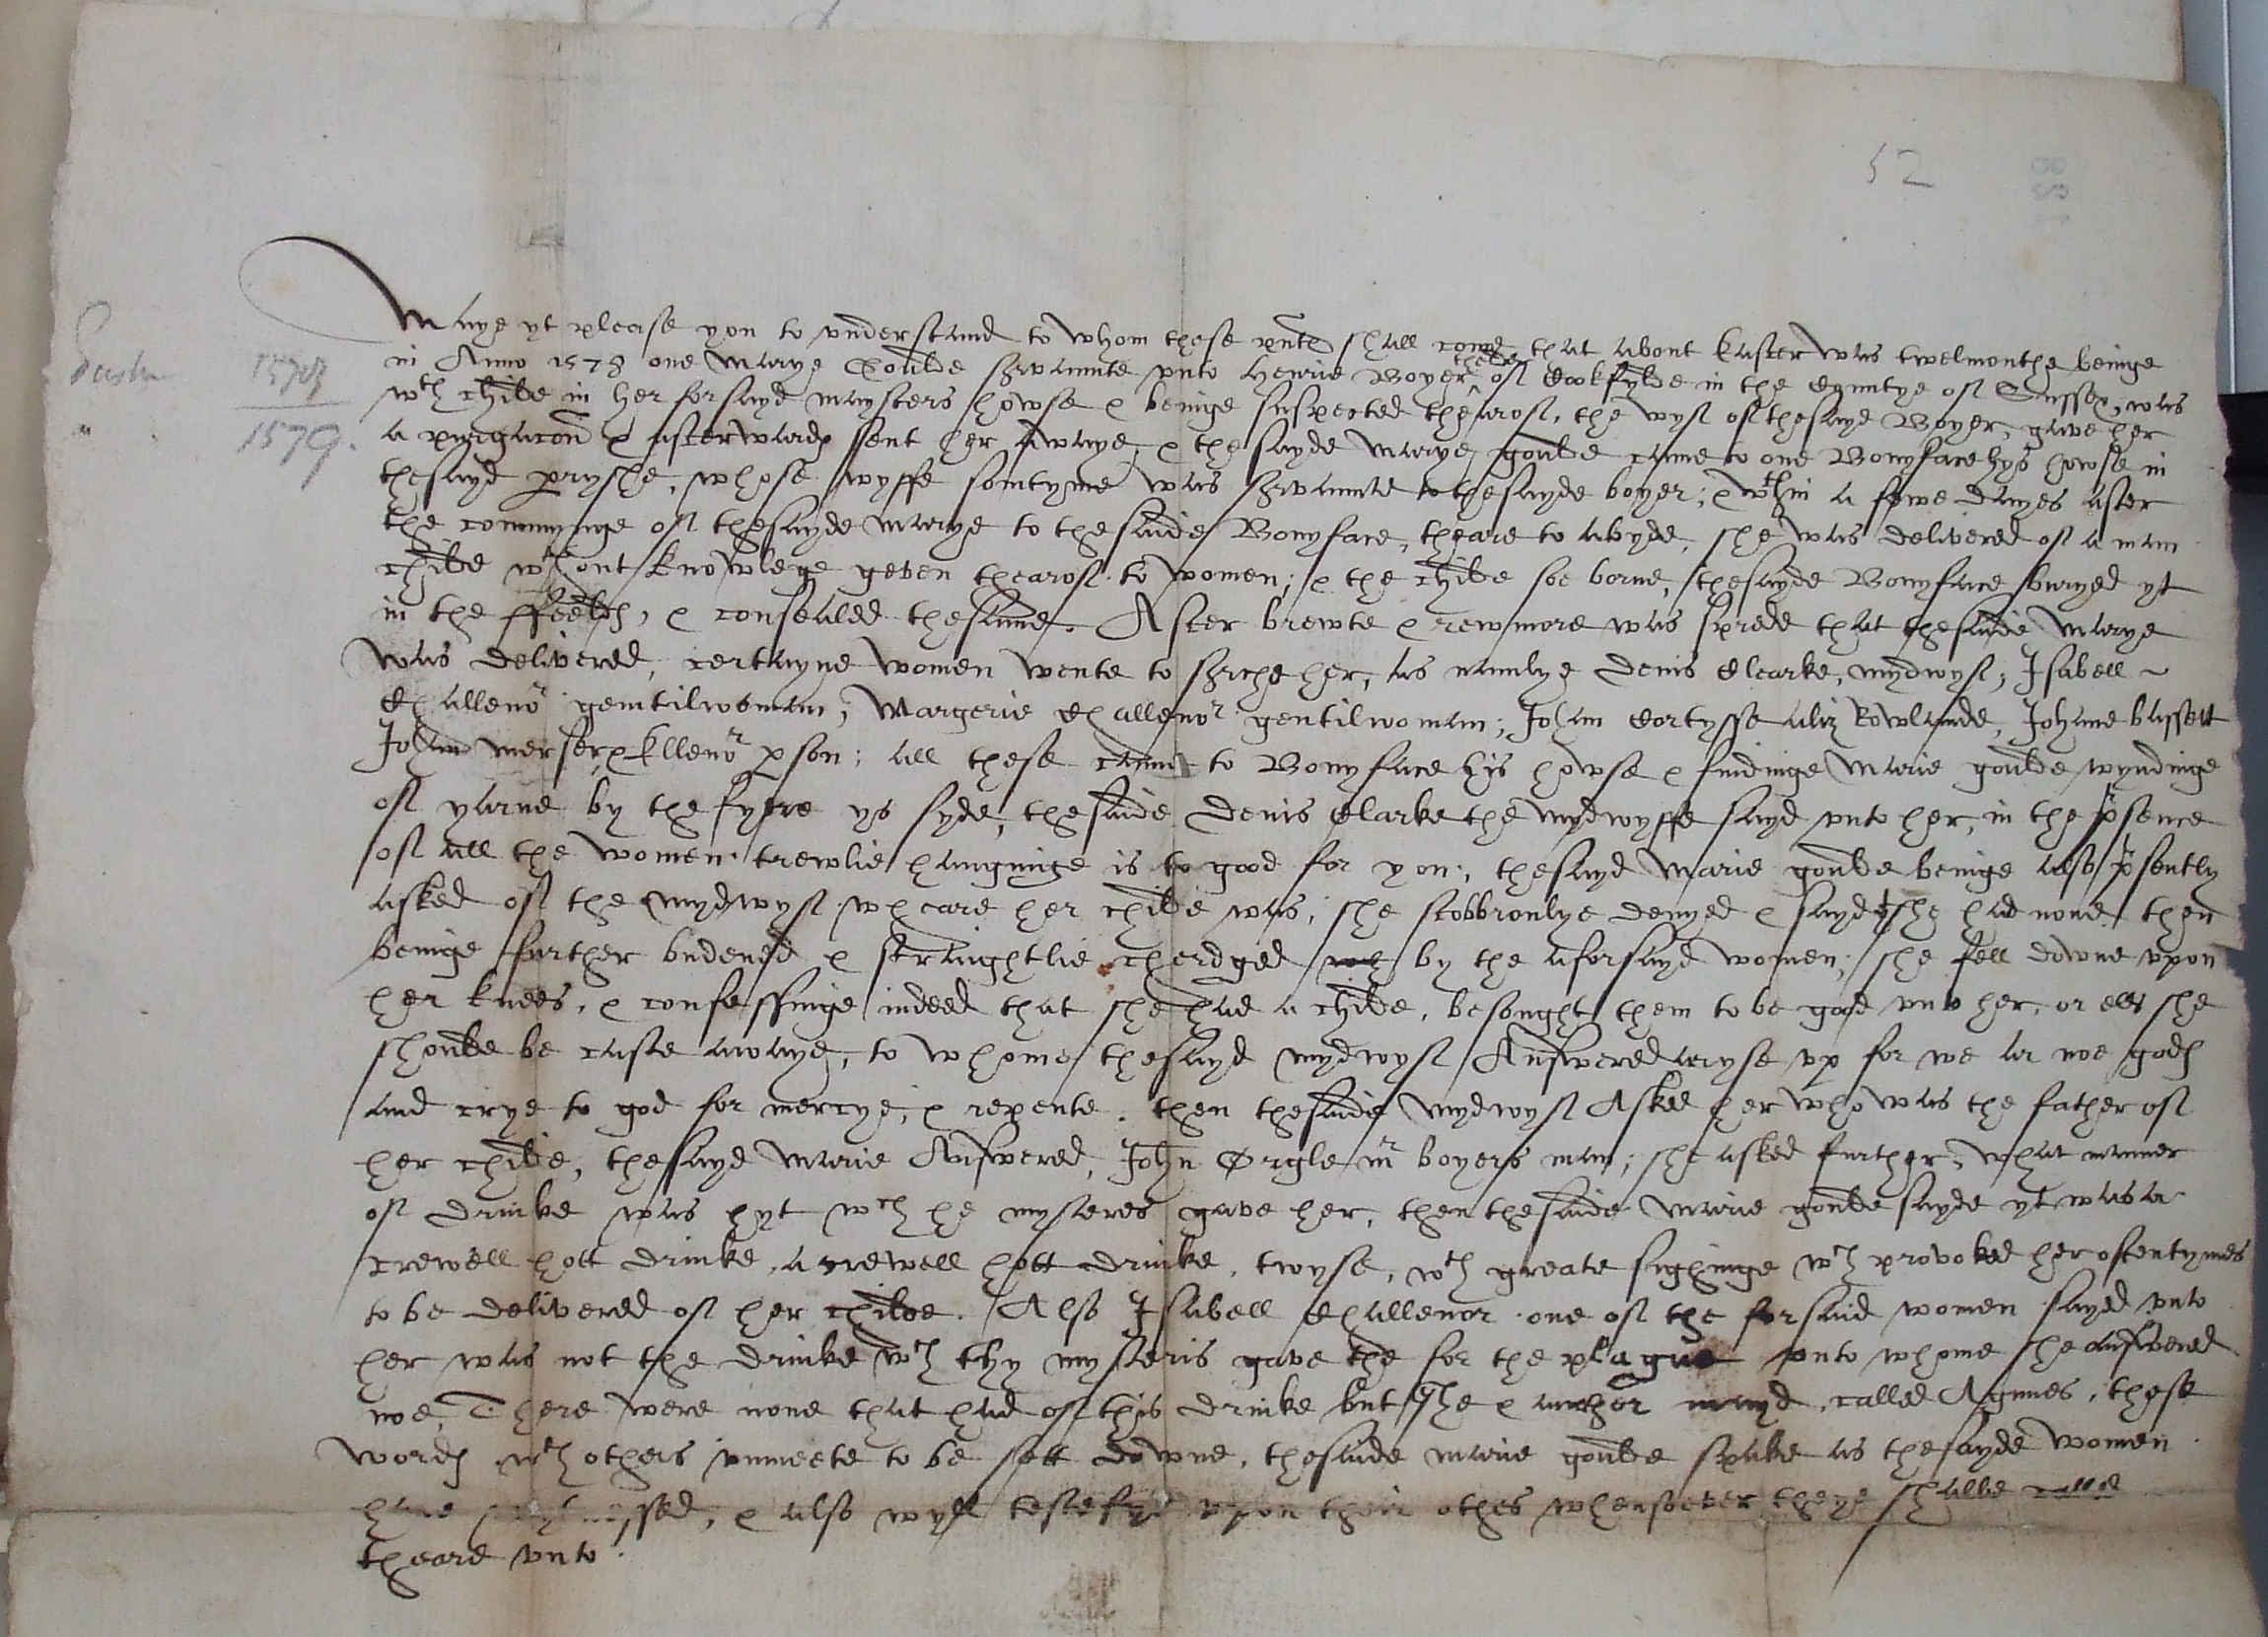 52
Easter
1578
1579.
Maye yt please you to understand to whom these pnts shall come, that about Easter was twelmonthe beinge
in Anno 1578 one Marye Goulde servaunte unto Henrie Boyer thelder of Cookfylde in the Countye of Sussex, was
wth childe in her forsayd maysters howse & beinge suspected thearof, the wyf of thesayde Boyer, gave her
a purgacon & afterwards sent her awaye, & the sayde Marye goulde came to one Bonyface hys howse in
thesayd pryshe, whose wyffe somtyme was servaunte to thesayde boyer; & wthin a fewe dayes after
the commynge of thesayde Marye to thesaide Bonyface, theare to abyde, she was delivered of a man
childe wthout knowlege geven thearof to women; & the childe soe borne, thesayde Bonyface buryed yt
in the ffeelds, & consealed thesame. After brewte & rewmore was sprede that thesaide Marye
was delivered, certayne women wente to serche her, as namlye Denis Clearke, mydwyf, Isabell ~
Challenor gentilwoman, Margerie Challenor gentilwoman; Johan Cortysse aliz Rowlande, Johane bassett
Johan merser, & Ellenor pson; all these came to Bonyface hys howse & findinge Marie goulde wyndinge
of yarne by the fyere ys syde, thesaide Denis Clarke the mydwyffe sayd unto her, in the psence
of all the women. trewlie hanginge is to good for you; thesayd Marie goulde beinge also psently
asked of the mydwyf wheare her childe was, she stobbronlye denyed & sayd yt she had none. then
beinge further burdened & straightlie chardged by the aforsayd women; she fell downe upon
her knees, & confessinge indeed that she had a childe, besought them to be good unto her, or ells she
shoulde be caste awaye, to whome thesayd mydwyf Answered aryse up for we ar noe gods
and crye to god for mercye, & repente. then thesaide mydwyf Asked her who was the father of
her childe, thesayd Marie Answered, John Orgle mr boyers man; she asked further, what manner
of drinke was hyt wch he mysteres gave her, then thesaide Marie goulde sayde yt was a
crewell hott drinke, a crewell hott drinke, twyse, wth greate sighinge wch provoked her oftentymes
to be delivered of her childe. Also Isabell Challenor one of the forsaid women sayed unto
her was not the drinke wch thy mysteris gave the for the plague unto whome she answered
noe, There were none that had of this drinke but she & another mayd, called Agnnes, these
words wth others unmeete to be sett downe, thesaide marie goulde spake as thesayde women
have ssed, & also wyll testefye upon their othes whensoever theye shalbe called
theare unto.